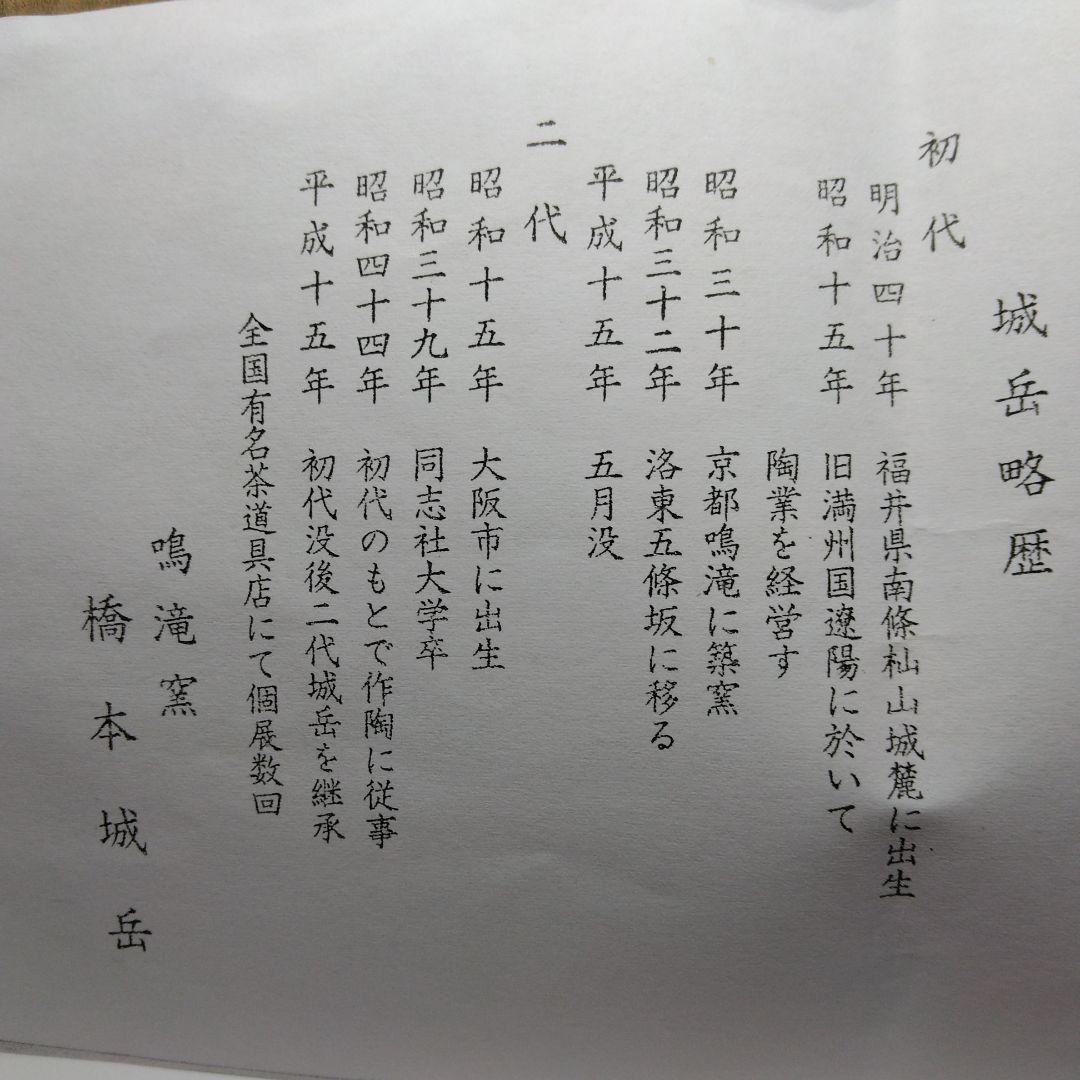 城岳略歴
初代
明治四十年 福井県南條杣山城麓に出生
昭和十五年 旧満州国遼陽に於いて
陶業を経営す
昭和三十年 京都鳴滝に築窯
昭和三十二年 洛東五條坂に移る
平成十五年 五月没
二代
昭和十五年 大阪市に出生
昭和三十九年 同志社大学卒
昭和四十四年 初代のもとで作陶に従事
平成十五年 初代没後二代城岳を継承
全国有名茶道具店にて個展数回
鳴滝窯
橋本城岳